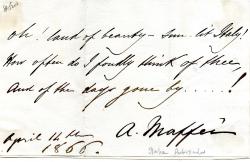 oh! land of beauty – sun lit Italy!
How often do I fondly think of thee,
And of the days gone by.....!
April 14th
1866.
A. Maffei